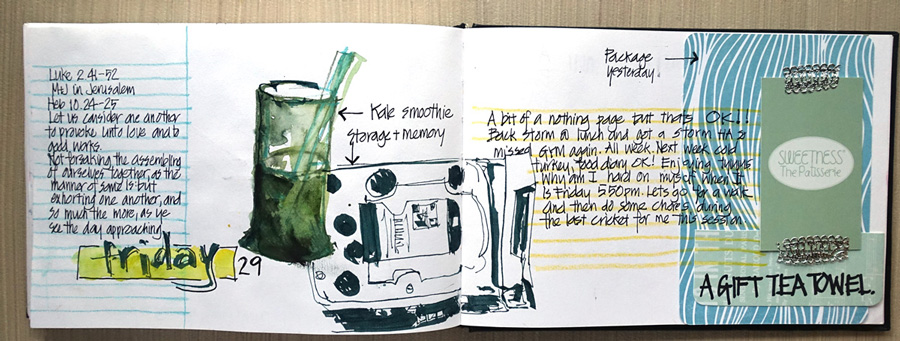 Luke 2.41-52
M+J in Jerusalem
Heb 10.24-25
Let us consider one another
to provoke unto love and to
good works.
Not forsaking the assembling
of ourselves together, as the
manner of some is but
exhorting one another, and
so much the more, as ye
see the day approaching
friday
29
Kale smoothie
storage + memory
A bit of a nothing page but thats OK!!
Back storm @ lunch and got a storm
missed gym again. All week. Next week cold
turkey, food diary OK! Enjoying
Why am I hard on myself when it
is Friday 5.50pm. Lets go for a walk
and then do some chores during
the last cricket for me this session
Package
yesterday.
SWEETNESS
The Patisserie
A GIFT TEA TOWEL.